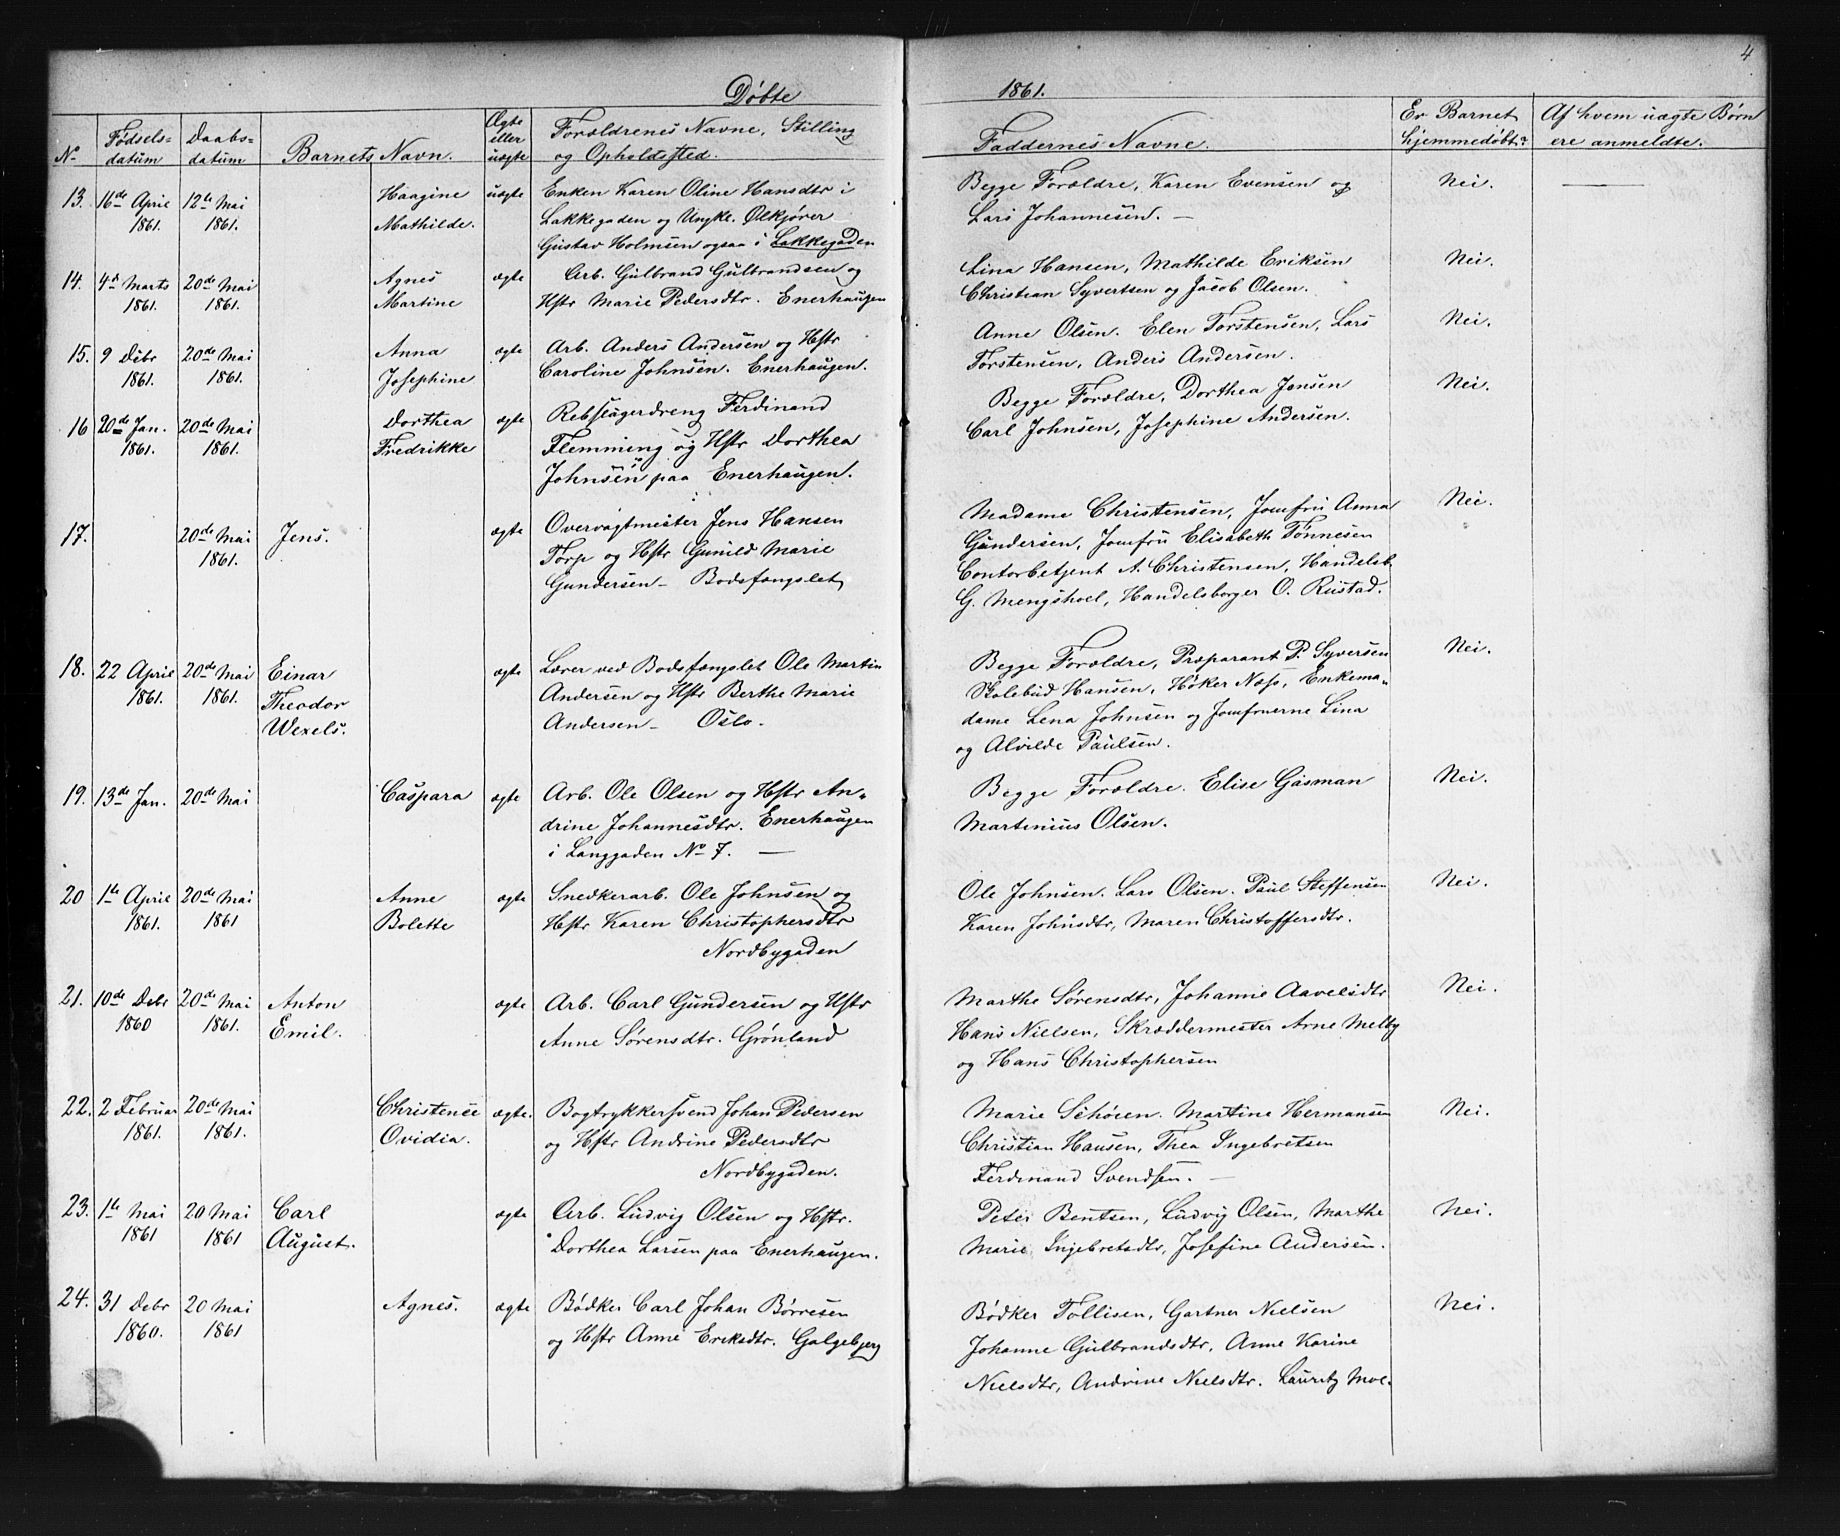 4
Døbte 1861.
No Fødsels-datum Daabs-datum Barnets Navn. Ægte eller uægte Forældrenes Navne, Stilling og Opholdssted. Faddernes Navne. Er Barnet hjemmedøbt? Af hvem uægte Børn ere anmeldte.
13. 16de April 12te Mai Haagine uægte Enken Karen Oline Hansdtr i Begge Forældre, Karen Evensen og Nei. —
1861. 1861. Mathilde. Lakkegaden og Ungk. Ølkjører Lars Johannesen. —
Gustav Holmsen ogsaa i Lakkegaden
14. 4de Marts 20de Mai Agnes ægte Arb. Gulbrand Gulbrandsen og Lina Hansen, Mathilde Eriksen Nei.
1861. 1861. Martine Hstr Marie Pedersdtr. Enerhaugen Christian Syvertsen og Jacob Olsen.
15. 9 Debr 20de Mai Anna ægte Arb. Anders Andersen og Hstr Anne Olsen. Elen Torstensen, Lars Nei.
1861. 1861. Josephine Caroline Johnsen. Enerhaugen. Torstensen, Anders Andersen.
16 20de Jan. 20de Mai Dorthea ægte Rebslagerdreng Ferdinand Begge Forældre, Dorthea Jensen Nei.
1861. 1861. Fredrikke Flemming og Hstr Dorthea Carl Johnsen, Josephine Andersen.
Johnsen paa Enerhaugen.
17. 20de Mai Jens. ægte Overvagtmester Jens Hansen Madame Christensen, Jomfru Anna Nei.
1861. Torp og Hstr Gunild Marie Gundersen, Jomfru Elisabeth Tønnesen
Gundersen - Bodsfængslet Contorbetjent A. Christensen, Handelsb.
G. Mengshoel, Handelsborger O. Rustad.
18. 22 April 20de Mai Einar ægte Lærer ved Bodsfængslet Ole Martin Begge Forældre, Præparant P. Syversen Nei.
1861. 1861. Theodor Andersen og Hstr Berthe Marie Skolebud Hansen, Høker Næss, Enkema-
Wexels. Andersen - Oslo. dame Lena Johnsen og Jomfruerne Lina
og Alvilde Paulsen.
19. 13de Jan. 20de Mai Caspara ægte Arb. Ole Olsen og Hstr An- Begge Forældre. Elise Gasman Nei.
drine Johannesdtr. Enerhaugen Martinius Olsen.
i Langgaden No 7. —
20 1te April 20de Mai Anne ægte Snedkerarb. Ole Johnsen og Ole Johnsen. Lars Olsen. Paul Steffensen Nei.
1861. 1861 Bolette Hstr Karen Christophersdtr Karen Johnsdtr, Maren Christoffersdtr.
Nordbygaden
21. 10de Debr 20de Mai Anton ægte Arb. Carl Gundersen og Hstr Marthe Sørensdtr, Johanne Aavelsdtr Nei.
1860 1861. Emil. Anne Sørensdtr. Grønland Hans Nielsen, Skræddermester Arne Melby
og Hans Christophersen
22. 2 Februar 20de Mai Christense ægte. Bogtrykkersvend Johan Pedersen Marie Schøien. Martine Hermansen Nei.
1861. 1861. Ovidia. og Hstr Andrine Pedersdtr Christian Hansen, Thea Ingebretsen
Nordbygaden. Ferdinand Svendsen. —
23. 1te Mai 20 Mai Carl ægte Arb. Ludvig Olsen og Hstr. Peter Bentsen, Ludvig Olsen, Marthe Nei.
1861 1861 August. Dorthea Larsen paa Enerhaugen. Marie Ingebretsdtr, Josefine Andersen.
24. 31 Debr 20 Mai Agnes. ægte Bødker Carl Johan Børresen Bødker Tollisen, Gartner Nielsen Nei.
1860. 1861 og Hstr Anne Eriksdtr. Galgebjerg Johanne Gulbrandsdtr, Anne Karine
Nielsdtr, Andrine Nielsdtr. Lauritz Moe.